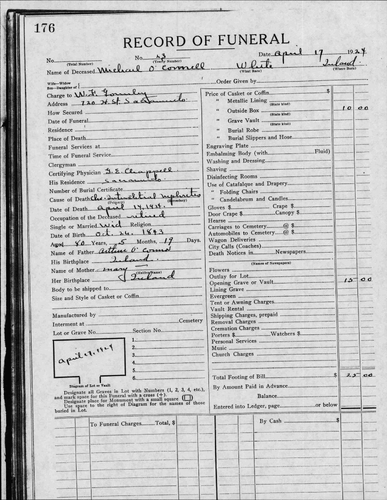 176
RECORD OF FUNERAL
No. No. 43 Date April 17 1924
(Total Number) (Yearly Number)
Name of Deceased Michael O'Connell White Ireland
(What Race) (Where Born)
Wife—Widow
Son—Daughter of
Order Given by
Charge to W. F. Gormley
Address 720 H St. Sacramento
How Secured
Date of Funeral
Residence
Place of Death
Funeral Services at
Time of Funeral Service
Clergyman
Certifying Physician
His Residence Sacramento
Number of Burial Certificate
Cause of Death Interstitial nephritis
Date of Death April 17, 1924
Occupation of the Deceased retired
Single or Married wid Religion
Date of Birth Oct 24, 1843
Aged 80 Years, 5 Months, 19 Days.
Name of Father Arthur O'Connell
His Birthplace Ireland
Name of Mother Mary
Her Birthplace Ireland
Body to be shipped to
Size and Style of Casket or Coffin
Manufactured by
Interment at Cemetery
Lot or Grave No. Section No.
1.
2.
3.
4.
5.
6.
7.
8.
April 19, 1924
Diagram of Lot or Vault
Designate all Graves in Lot with Numbers (1, 2, 3, 4, etc.),
and mark space for this Funeral with a cross (+).
Designate place for Monument with a small square
Use space to the right of Diagram for the names of those
buried in Lot.
To Funeral Charges Total, $
Price of Casket or Coffin
" Metallic Lining
(State Kind)
" Outside Box 10 00
(State Kind)
" Grave Vault
(State Kind)
" Burial Robe
(State Kind)
" Burial Slippers and Hose
Engraving Plate
Embalming Body (with Fluid)
Washing and Dressing
Shaving
Disinfecting Rooms
Use of Catafalque and Drapery
" Folding Chairs
" Candelabrum and Candles
Gloves $ Crape $
Door Crape $ Canopy $
Hearse
Carriages to Cemetery @ $
Automobiles to Cemetery @ $
Wagon Deliveries
City Calls (Coaches)
Death Notices in Newspapers
(Names of Newspapers)
Flowers
Outlay for Lot
Opening Grave or Vault 15 00
Lining Grave
Evergreen
Tent or Awning Charges
Vault Rental
Shipping Charges, prepaid
Removal Charges
Cremation Charges
Porters $ Watchers $
Personal Services
Music
Church Charges
Total Footing of Bill $ 25 00
By Amount Paid in Advance
Balance
Entered into Ledger, page or below.
By Cash $